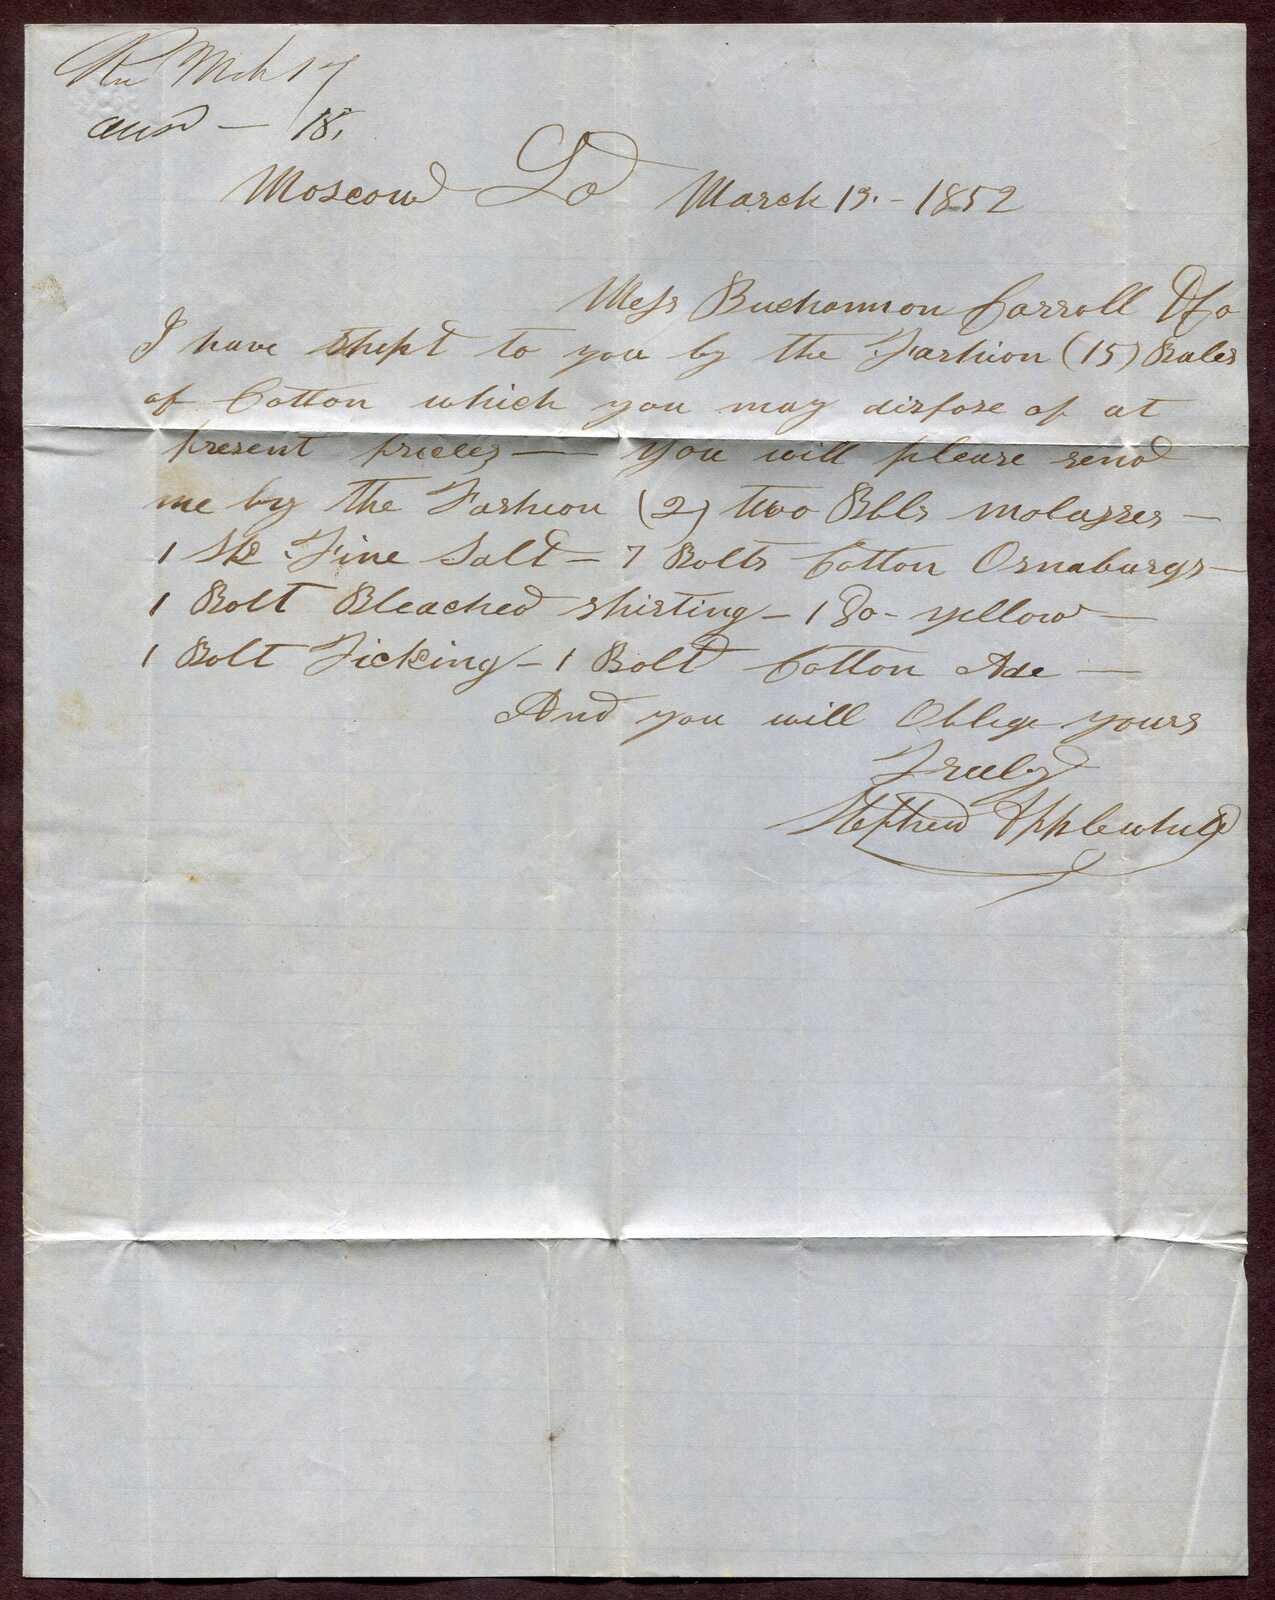 Rec Mch 17
ansd — 18.
Moscow La March 13. - 1852
Mess Buchannon Carroll & Co
I have shept to you by the Fashion (15) Bales
of Cotton which you may dispose of at
present prices — You will please send
me by the Fashion (2) two Bbls molasses —
1 Sk Fine Salt — 7 Bolts Cotton Osnaburgs —
1 Bolt Bleached shirting — 1 Do - yellow —
1 Bolt Ticking — 1 Bolt Cotton —
And you will Oblege yours
Truly
Stephen Applewhite